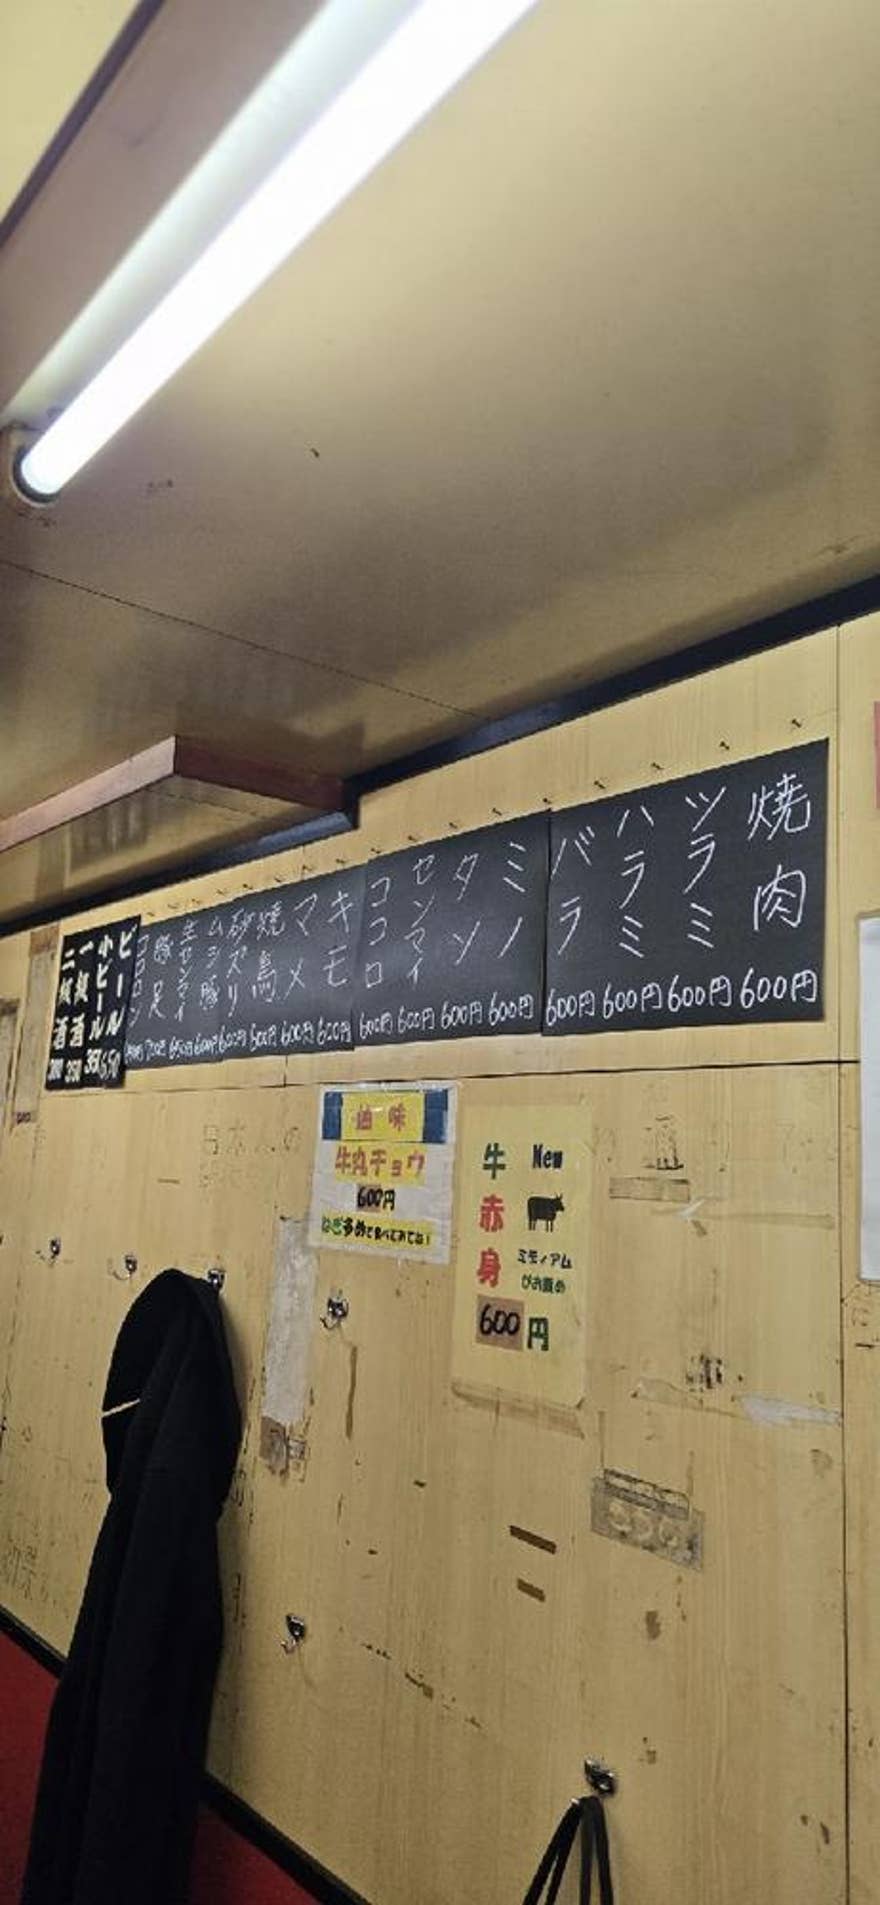 焼肉 600円
ツラミ 600円
ハラミ 600円
バラ 600円
ミノ 600円
タン 600円
センマイ 600円
ココロ 600円
キモ 600円
マメ 600円
焼鳥 500円
砂ズリ 600円
ムシ豚 600円
生センマイ 650円
豚足 700円
ビール 650
小ビール 350
一級酒 350
二級酒 300
油味
牛丸チョウ
600円
ねぎ多めで食べてみてね!
牛赤身
New
600円